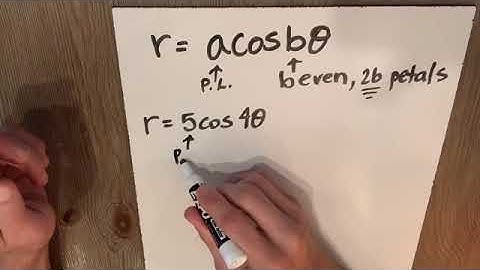 r = acosbθ
P.L.
b even, 2b petals
r = 5cos4θ
P